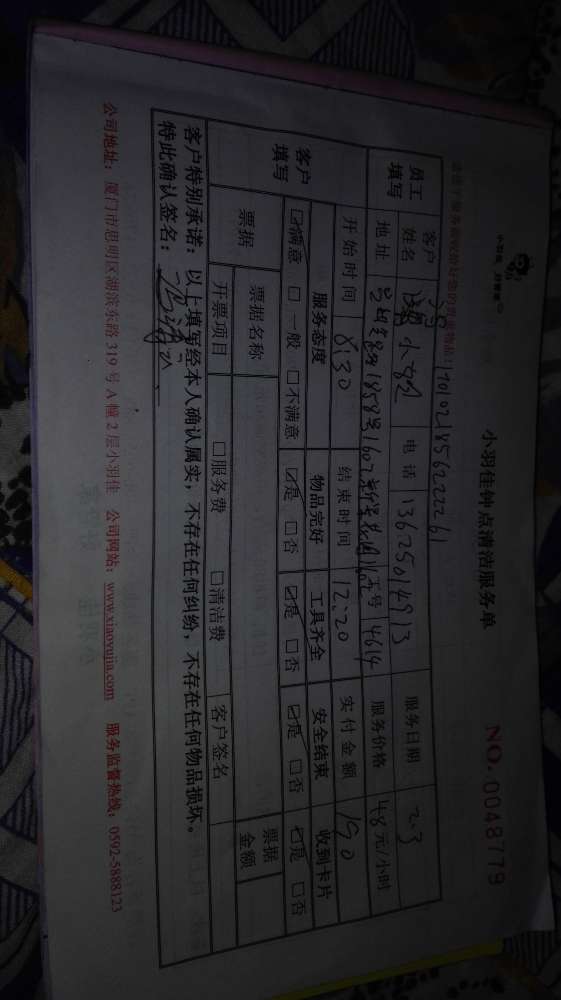 小羽佳钟点清洁服务单
NO. 0048779
170102185622261
员工填写 客户姓名 小姐 电话 13625014913 服务日期 2.3
地址 1602 工号 4614 服务价格 48元/小时
开始时间 8:30 结束时间 12:20 实付金额 190
客户填写 服务态度 物品完好 工具齐全 安全结束 收到卡片
☑满意 □一般 □不满意 ☑是 □否 ☑是 □否 ☑是 □否 ☑是 □否
票据 票据名称 票据金额
开票项目 □服务费 □清洁费 客户签名
客户特别承诺：以上填写经本人确认属实，不存在任何纠纷，不存在任何物品损坏。
特此确认签名：
公司地址：厦门市思明区湖滨东路319号A幢2层小羽佳 公司网站：www.xiaoyujia.com 服务监督热线：0592-5888123